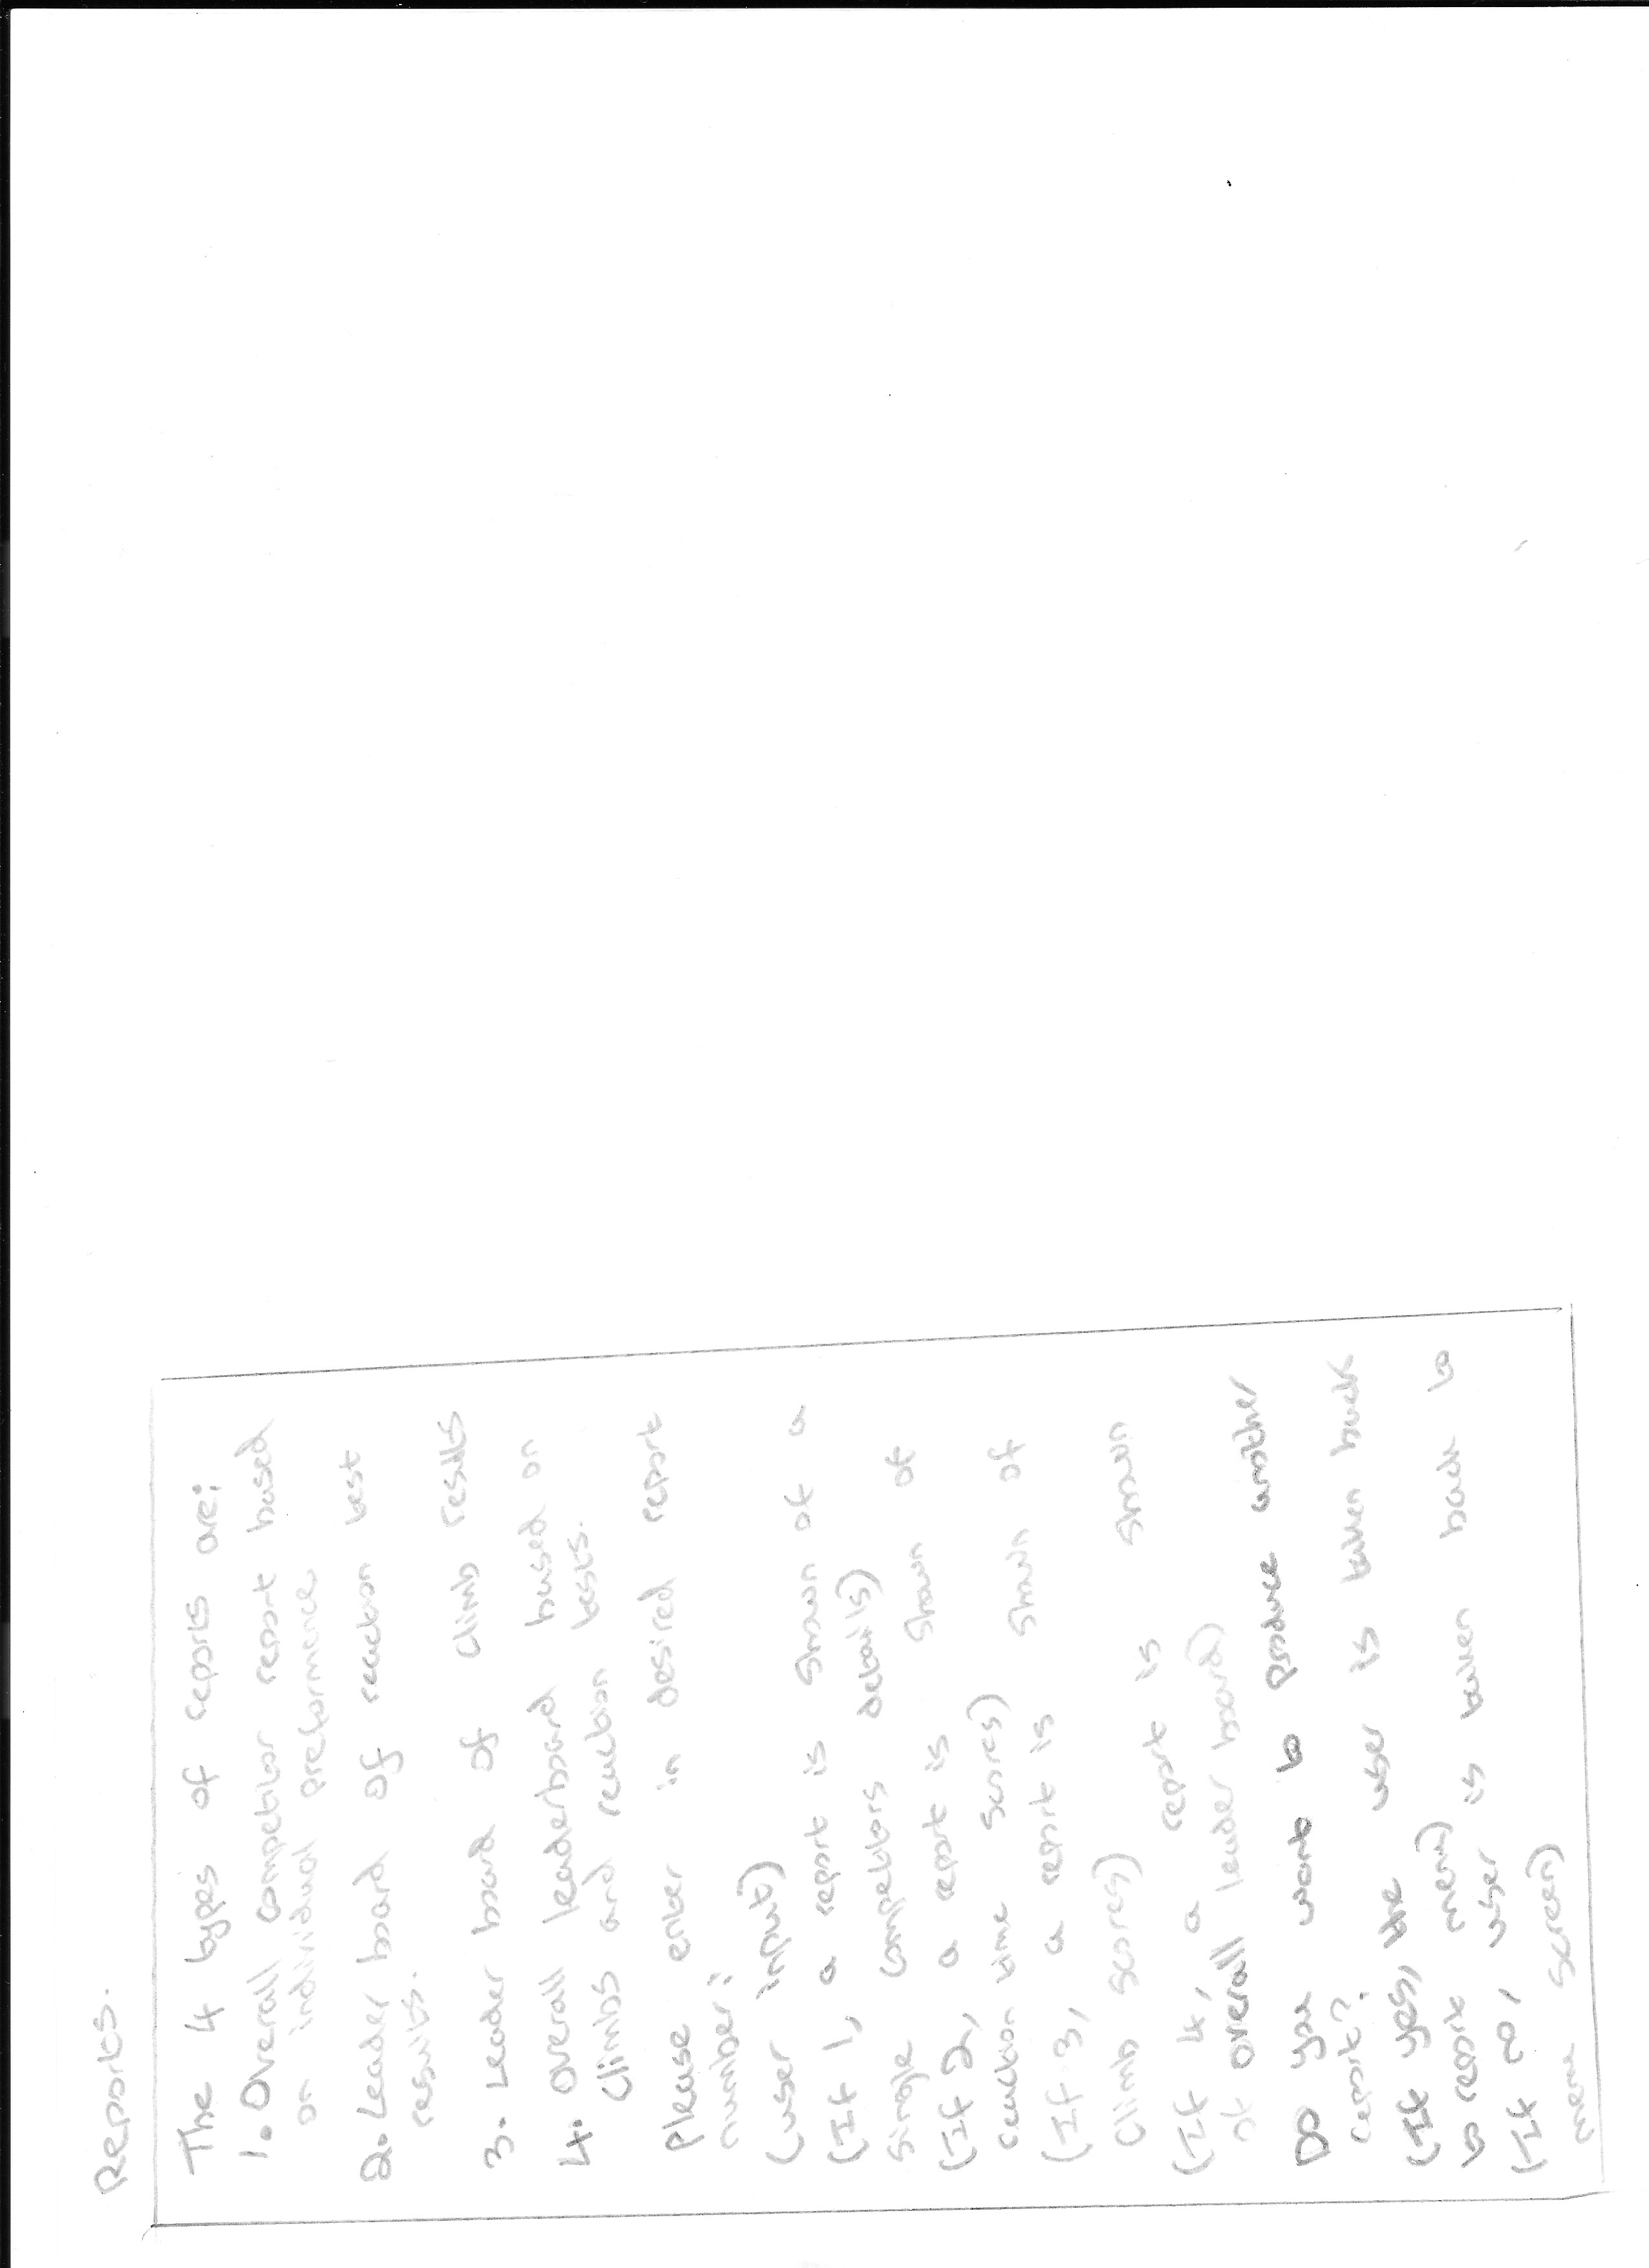 Reports.
The 4 types of reports are:
1. Overall competitor report based
on individual preformence
2. Leader board of reaction test
results.
3. Leader board of climb results
4. overall leaderboard based on
climbs and reaction tests.
please enter in desired report
number:
(user input)
(If 1, a report is shown of a
single competitors details)
(If 2, a report is shown of
reaction time scores)
(If 3, a report is shown of
climb scores)
(If 4, a report is shown
of overall leader board)
Do you want to produce another
report?
(If yes, the user is taken back
to report menu)
(If no, user is taken back to
menu screen)